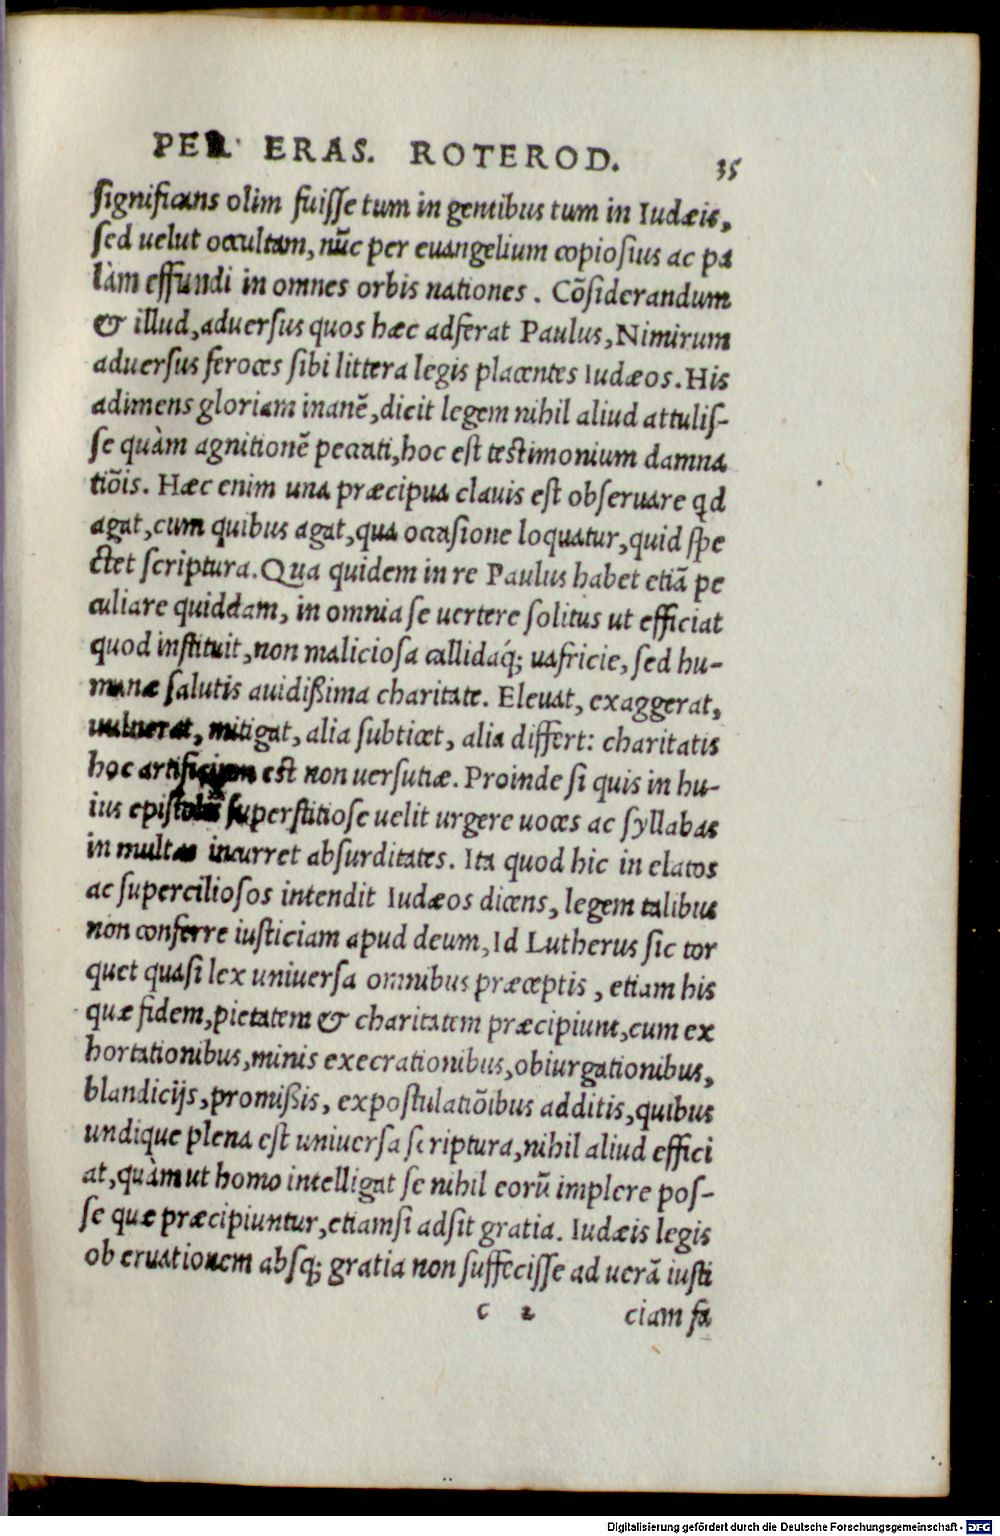 PER ERAS. ROTEROD. 35
significans olim fuisse tum in gentibus tum in Iudæis,
sed uelut occultam, nūc per euangelium copiosius ac pa
làm effundi in omnes orbis nationes. Cōsiderandum
& illud, aduersus quos hæc adferat Paulus, Nimirum
aduersus feroces sibi littera legis placentes Iudæos. His
adimens gloriam inanē, dicit legem nihil aliud attulis-
se quàm agnitionē peccati, hoc est testimonium damna
tiōis. Hæc enim una præcipua clauis est obseruare qd
agat, cum quibus agat, qua occasione loquatur, quid spe
ctet scriptura. Qua quidem in re Paulus habet etiā pe
culiare quiddam, in omnia se uertere solitus ut efficiat
quod instituit, non maliciosa callidaq́; uafricie, sed hu-
manæ salutis auidißima charitate. Eleuat, exaggerat,
uulnerat, mitigat, alia subticet, alia differt: charitatis
hoc artificium est non uersutiæ. Proinde si quis in hu-
ius epistolis superstitiose uelit urgere uoces ac syllabas
in multas incurret absurditates. Ita quod hic in elatos
ac superciliosos intendit Iudæos dicens, legem talibus
non conferre iusticiam apud deum, Id Lutherus sic tor
quet quasi lex uniuersa omnibus præceptis, etiam his
quæ fidem, pietatem & charitatem præcipiunt, cum ex
hortationibus, minis execrationibus, obiurgationibus,
blandicijs, promißis, expostulatiōibus additis, quibus
undique plena est uniuersa scriptura, nihil aliud effici
at, quàm ut homo intelligat se nihil eorū implere pos-
se quæ præcipiuntur, etiamsi adsit gratia. Iudæis legis
ob eruationem absq; gratia non suffecisse ad uerā iusti
c 2 ciam fa
Digitalisierung gefördert durch die Deutsche Forschungsgemeinschaft - DFG